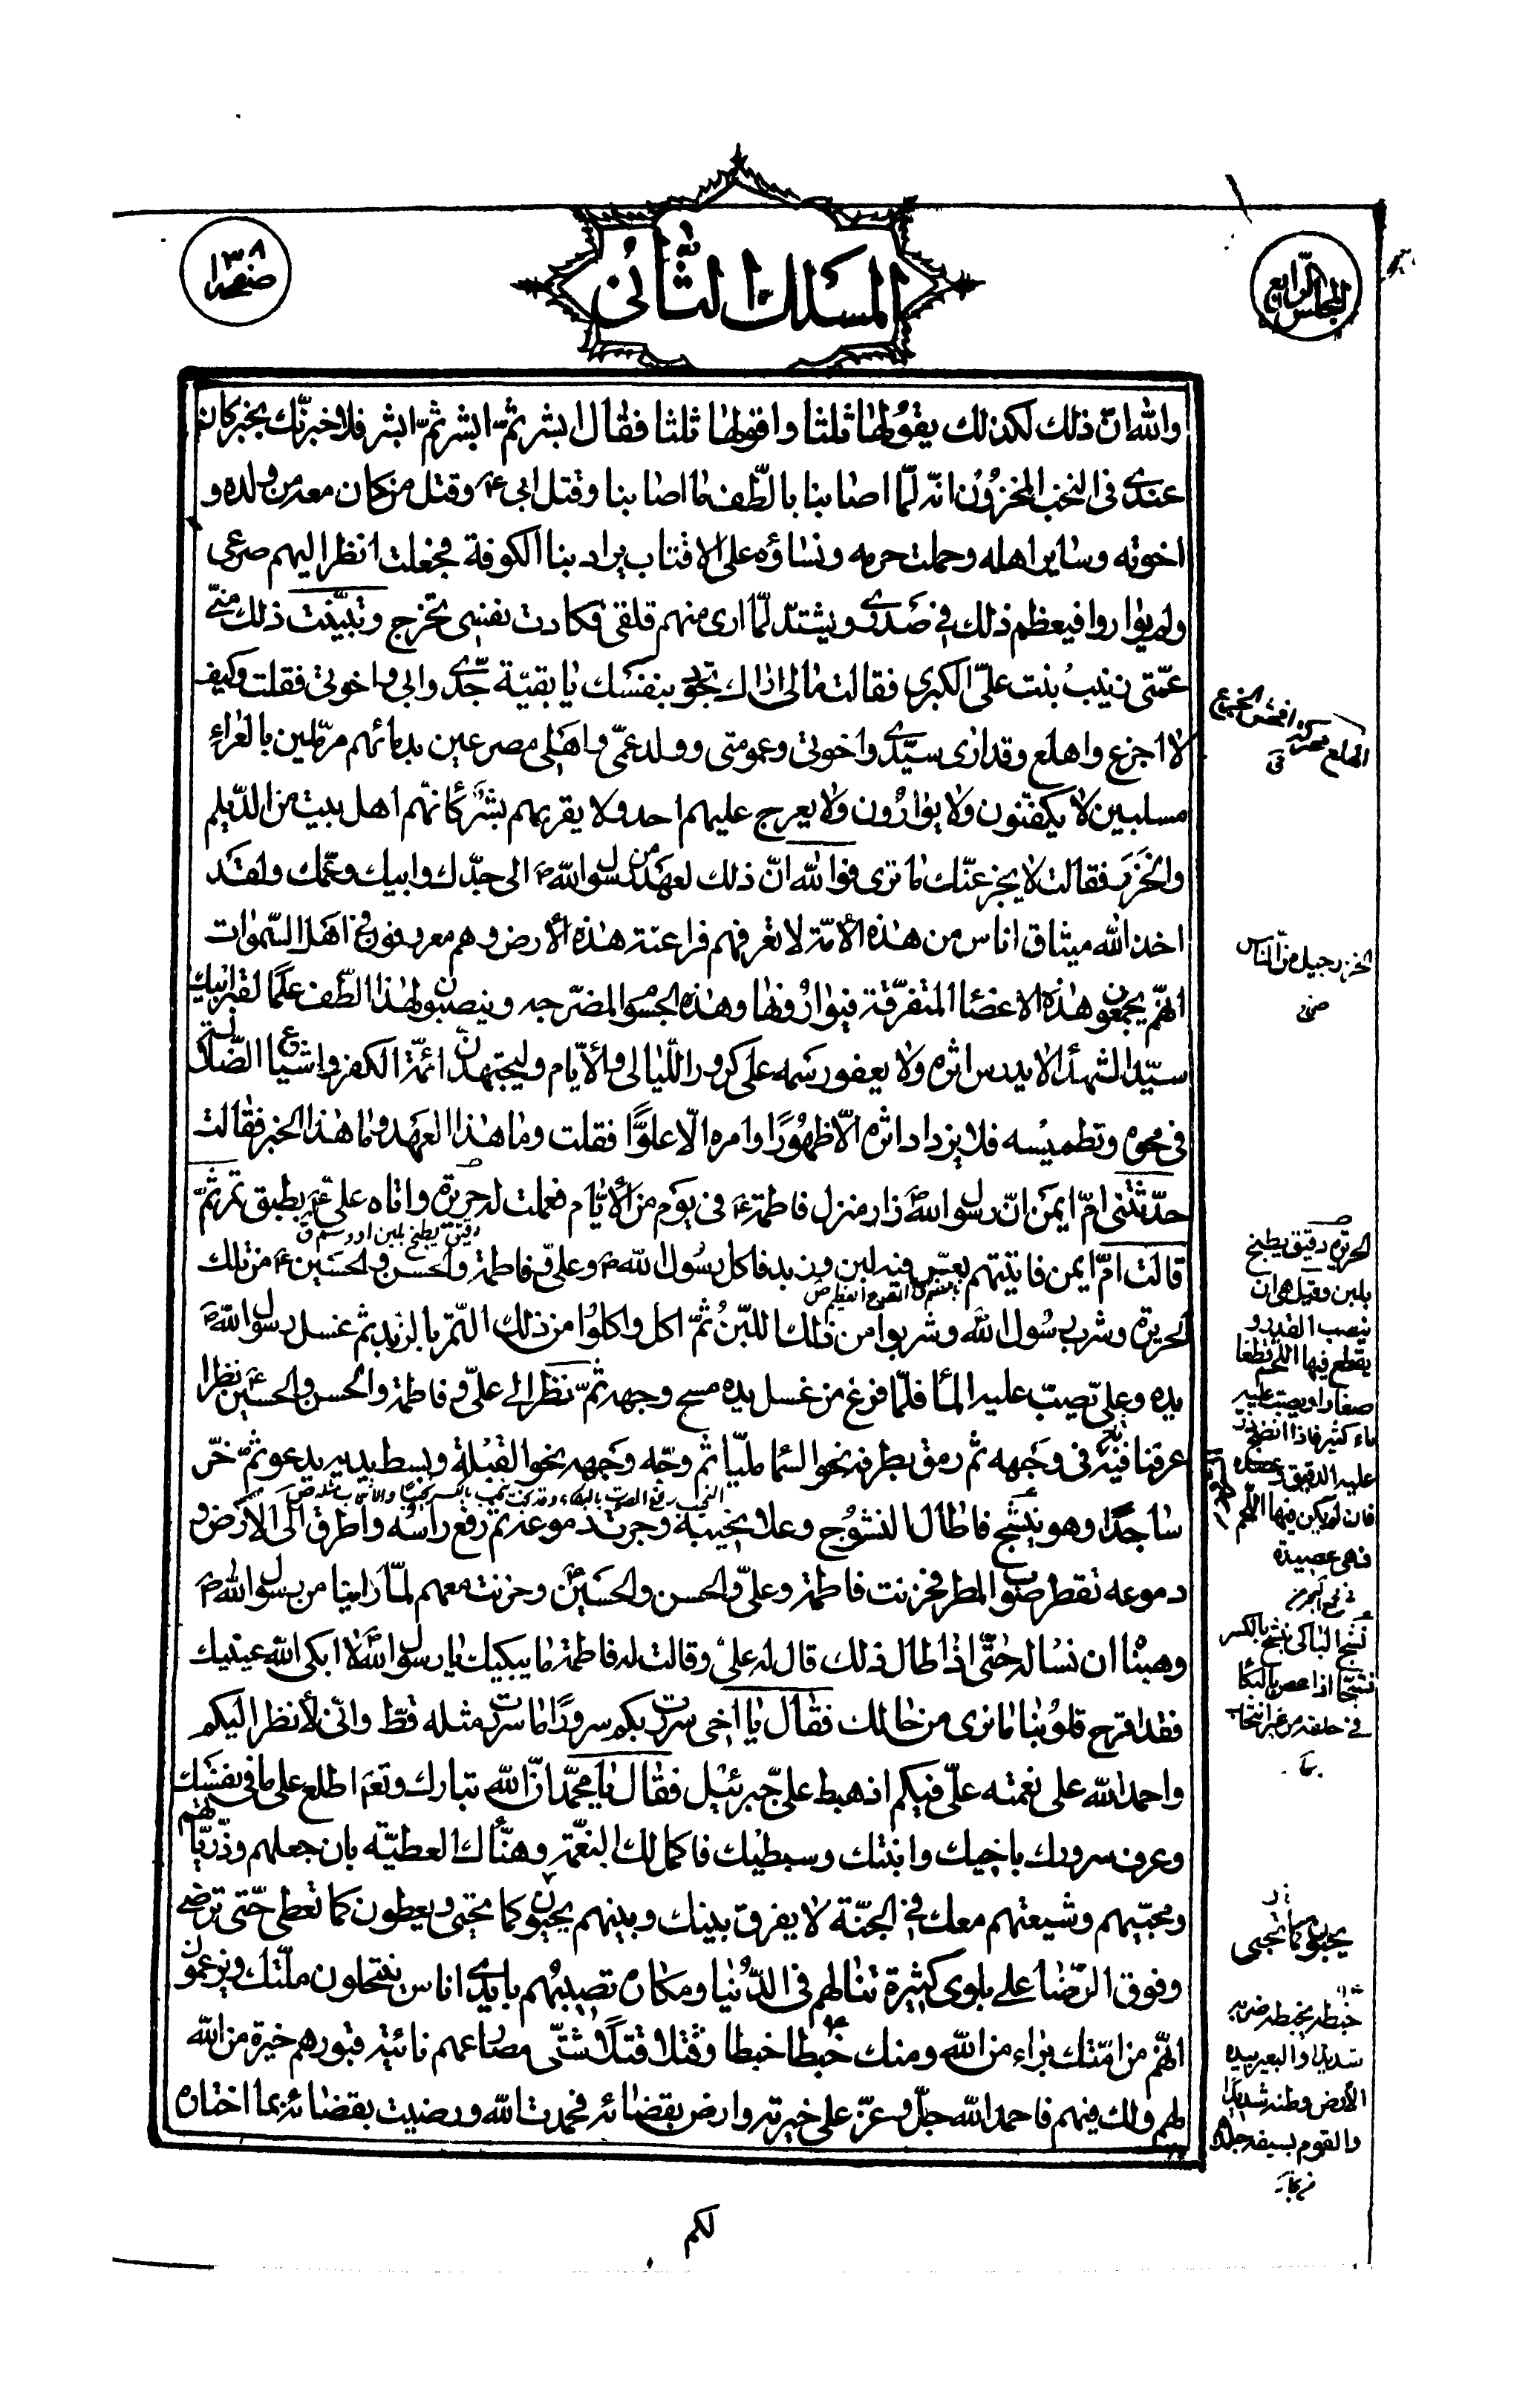 المجلس الرابع
المسلك الثاني
صفحه ١٣٨
والله انّ ذلك لكذلك يقولها ثلثا واقولها ثلثا فقال ابشر ثمّ ابشر ثمّ ابشر فلاخبرنّك بخبر كان
عندي في النخب المخزون انه لمّا اصابنا بالطّف ما اصابنا وقتل ابي ع وقتل من كان معه من ولده و
اخوته وساير اهله وحملت حرمه ونساؤه على الاقتاب يراد بنا الكوفة فجعلت انظر اليهم صرعى
ولم يواروا فيعظم ذلك في صدري ويشتدّ لمّا ارى منهم قلقي فكادت نفسي تخرج وتبيّنت ذلك منّي
عمّتي زينب بنت عليّ الكبرى فقالت مالي اراك تجود بنفسك يا بقيّة جدّي وابي واخوتي فقلت وكيف
لا اجزع واهلع وقد ارى سيّدي واخوتي وعمومتي وولد عمّي واهلي مصرعين بدمائهم مرمّلين بالعراء
مسلبين لا يكفّنون ولا يوارون ولا يعرج عليهم احد ولا يقربهم بشر كانّهم اهل بيت من الدّيلم
والخزر فقالت لا يجزعنّك ما ترى فوالله انّ ذلك لعهد من رسول الله ص الى جدّك وابيك وعمّك ولقد
اخذ الله ميثاق اناس من هذه الأمّة لا تعرفهم فراعنة هذه الأرض وهم معروفون في اهل السّموات
انّهم يجمعون هذه الاعضاء المتفرّقة فيوارونها وهذه الجسوم المضرّجه وينصبون لهذا الطّف علمًا لقبر ابيك
سيّد الشهداء لا يدرس اثره ولا يعفو رسمه على كرور اللّيالي والأيّام وليجتهدنّ ائمّة الكفر واشياع الضّلالة
في محوه وتطميسه فلا يزداد اثره الّا ظهورًا وامره الّا علوًّا فقلت وما هذا العهد وما هذا الخبر فقالت
حدّثتني امّ ايمن انّ رسول الله ص زار منزل فاطمة ع في يوم من الأيّام فعملت له حريرة واتاه علي ع بطبق تمر ثمّ
دقيق يطبخ بلبن او دسم ق
قالت امّ ايمن فاتيتهم بعسّ فيه لبن وزبد فاكل رسول الله ص وعليّ وفاطمة والحسن والحسين ع من تلك
القدح العظيم ص
الحريرة وشرب رسول الله وشربوا من ذلك اللبن ثمّ اكل واكلوا من ذلك التمر بالزبد ثم غسل رسول الله ص
يده وعليّ يصبّ عليه الماء فلمّا فرغ من غسل يده مسح وجهه ثمّ نظر الى عليّ وفاطمة والحسن والحسين ع نظرا
عرفنا فيه في وجهه ثم رمق بطرفه نحو السماء مليّا ثم وجّه وجهه نحو القبلة وبسط يديه يدعو ثمّ خرّ
ساجدًا وهو ينشج فاطال النشوج وعلا نحيبه وجرت دموعه ثم رفع راسه واطرق الى الأرض و
دموعه تقطر صوب المطر فحزنت فاطمة وعليّ والحسن والحسين وحزنت معهم لمّا راينا من رسول الله ص
وهبنا ان نساله حتّى اذا طال ذلك قال له علي وقالت له فاطمة ما يبكيك يا رسول الله لا ابكى الله عينيك
فقد اقرح قلوبنا ما نرى من حالك فقال يا اخي سررت بكم سرورًا ما سررت مثله قطّ وانّي لأنظر اليكم
واحمد الله على نعمته عليّ فيكم اذ هبط عليّ جبرئيل فقال يا محمّد انّ الله تبارك وتعم اطلع على ما في نفسك
وعرف سرورك باخيك وابنتك وسبطيك فاكمل لك النعمة وهنّاك العطيّة بان جعلهم وذريّاتهم
ومحبّيهم وشيعتهم معك في الجنّة لا يفرق بينك وبينهم يحبون كما تحبى ويعطون كما تعطى حتّى ترضى
وفوق الرّضا على بلوى كثيرة تنالهم في الدّنيا ومكاره تصيبهم بايدي اناس ينتحلون ملّتك ويزعمون
انّهم من امّتك براء من الله ومنك خبطا خبطا وقتلا قتلًا شتّى مصارعهم نائية قبورهم خيرة من الله
لهم ولك فيهم فاحمد الله جلّ وعزّ على خيرته وارض بقضائه فحمدت الله ورضيت بقضائه بما اختاره
لكم
الهلع محركة افحش الجزع
ق
الخزر جيل من النّاس
الحريرة دقيق يطبخ
بلبن وقيل هي ان
ينصب القدر و
يقطع فيها اللحم قطعا
صغارا ويصب عليه
ماء كثير فاذا نضج ذر
عليه الدقيق
فان لم يكن فيها اللحم
فهي عصيدة
في مجمع البحرين
نشج الباكي ينشج بالكسر
نشيجا اذا غص بالبكاء
في حلقه من غير انتحاب
يحبون كما تحبى
خبطه يخبطه ضربه
شديدا والبعير بيده
الأرض وطئه شديدا
والقوم بسيفه جلدهم